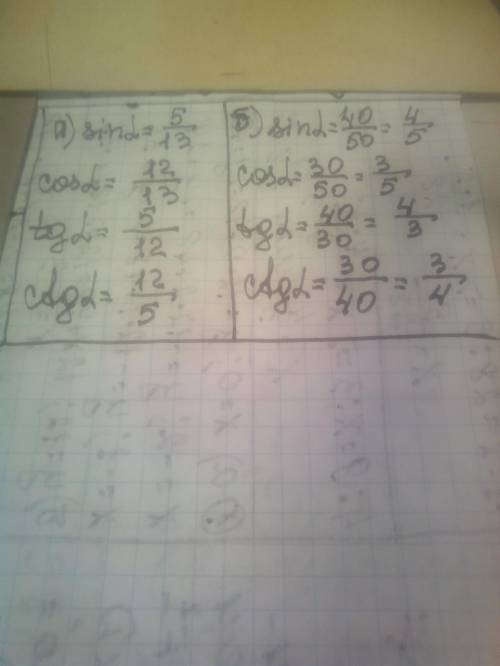 а) sinα = 5/13
cosα = 12/13
tgα = 5/12
ctgα = 12/5
б) sinα = 40/50 = 4/5
cosα = 30/50 = 3/5
tgα = 40/30 = 4/3
ctgα = 30/40 = 3/4